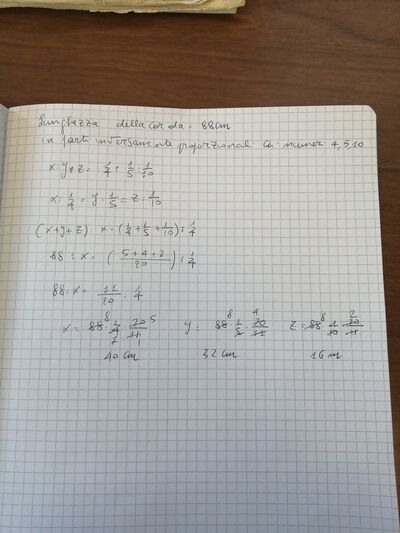 Lunghezza della corda = 88 cm
in parti inversamente proporzionali ai numeri 4, 5, 10
x : y : z = 1/4 : 1/5 : 1/10
x : 1/4 = y : 1/5 = z : 1/10
(x+y+z) x = (1/4 + 1/5 + 1/10) : 1/4
88 : x = (5+4+2/20) : 1/4
88 : x = 11/20 : 1/4
x = 88 8 · 1/4 · 20/11 5 y = 88 8 · 1/5 · 20/11 4 z = 88 8 · 1/10 · 20/11 2
40 cm 32 cm 16 m